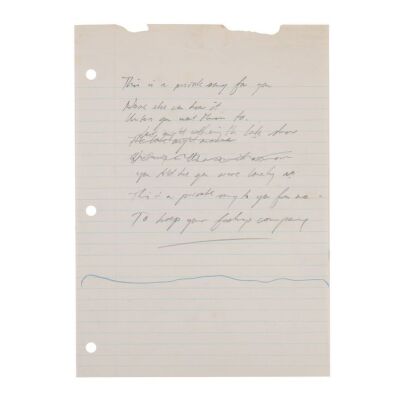 This is a private song for you
None else can hear it
Unless you want them to.
Late night watching the late show
The late night
You told me you were lonely
This is a private song to you from me
To keep your feelings company